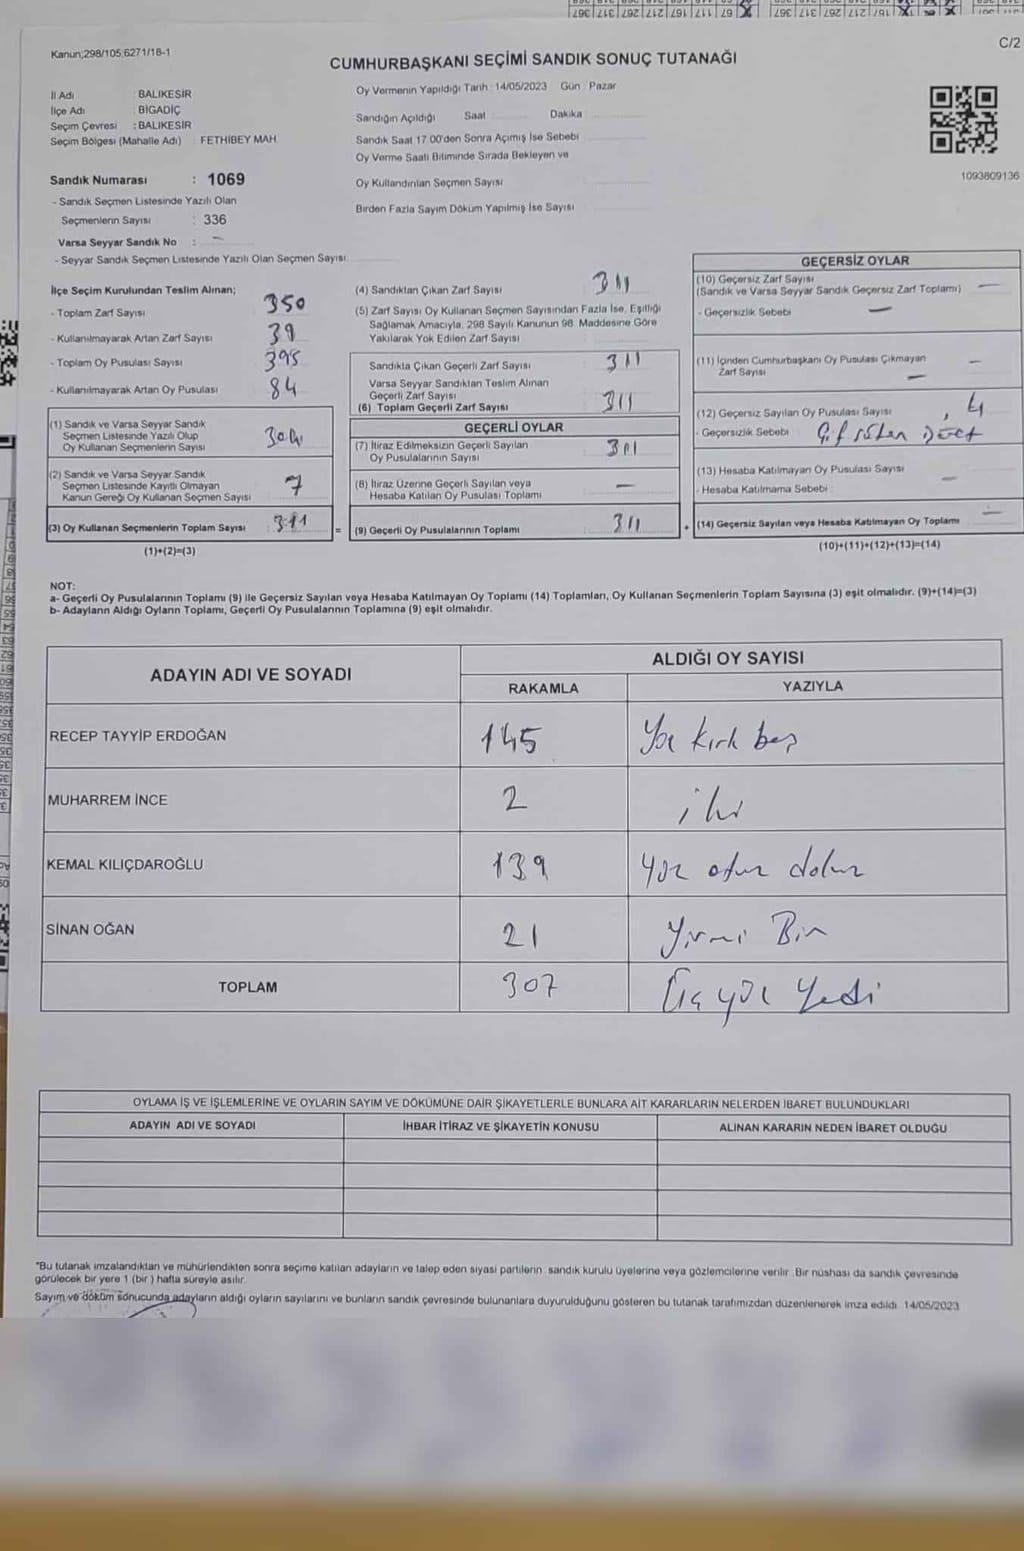 Kanun;298/105;6271/18-1
C/2
CUMHURBAŞKANI SEÇİMİ SANDIK SONUÇ TUTANAĞI
İl Adı : BALIKESİR
İlçe Adı : BİGADİÇ
Seçim Çevresi : BALIKESİR
Seçim Bölgesi (Mahalle Adı) FETHİBEY MAH
Oy Vermenin Yapıldığı Tarih : 14/05/2023 Gün : Pazar
Sandığın Açıldığı Saat Dakika
Sandık Saat 17:00'den Sonra Açımış İse Sebebi
Oy Verme Saati Bitiminde Sırada Bekleyen ve
Oy Kullandırılan Seçmen Sayısı
Birden Fazla Sayım Döküm Yapılmış İse Sayısı
1093809136
Sandık Numarası : 1069
- Sandık Seçmen Listesinde Yazılı Olan
Seçmenlerin Sayısı : 336
Varsa Seyyar Sandık No : –
- Seyyar Sandık Seçmen Listesinde Yazılı Olan Seçmen Sayısı
İlçe Seçim Kurulundan Teslim Alınan;
- Toplam Zarf Sayısı 350
- Kullanılmayarak Artan Zarf Sayısı 39
- Toplam Oy Pusulası Sayısı 395
- Kullanılmayarak Artan Oy Pusulası 84
(1) Sandık ve Varsa Seyyar Sandık
Seçmen Listesinde Yazılı Olup
Oy Kullanan Seçmenlerin Sayısı 304
(2) Sandık ve Varsa Seyyar Sandık
Seçmen Listesinde Kayıtlı Olmayan
Kanun Gereği Oy Kullanan Seçmen Sayısı 7
(3) Oy Kullanan Seçmenlerin Toplam Sayısı 311 =
(1)+(2)=(3)
(4) Sandıktan Çıkan Zarf Sayısı 311
(5) Zarf Sayısı Oy Kullanan Seçmen Sayısından Fazla İse, Eşitliği
Sağlamak Amacıyla, 298 Sayılı Kanunun 98. Maddesine Göre
Yakılarak Yok Edilen Zarf Sayısı
Sandıkta Çıkan Geçerli Zarf Sayısı 311
Varsa Seyyar Sandıktan Teslim Alınan
Geçerli Zarf Sayısı
(6) Toplam Geçerli Zarf Sayısı 311
GEÇERLİ OYLAR
(7) İtiraz Edilmeksizin Geçerli Sayılan
Oy Pusulalarının Sayısı 311
(8) İtiraz Üzerine Geçerli Sayılan veya
Hesaba Katılan Oy Pusulası Toplamı –
(9) Geçerli Oy Pusulalarının Toplamı 311 +
GEÇERSİZ OYLAR
(10) Geçersiz Zarf Sayısı
(Sandık ve Varsa Seyyar Sandık Geçersiz Zarf Toplamı) –
- Geçersizlik Sebebi –
(11) İçinden Cumhurbaşkanı Oy Pusulası Çıkmayan
Zarf Sayısı –
(12) Geçersiz Sayılan Oy Pusulası Sayısı 4
- Geçersizlik Sebebi
(13) Hesaba Katılmayan Oy Pusulası Sayısı –
- Hesaba Katılmama Sebebi
(14) Geçersiz Sayılan veya Hesaba Katılmayan Oy Toplamı –
(10)+(11)+(12)+(13)=(14)
NOT:
a- Geçerli Oy Pusulalarının Toplamı (9) ile Geçersiz Sayılan veya Hesaba Katılmayan Oy Toplamı (14) Toplamları, Oy Kullanan Seçmenlerin Toplam Sayısına (3) eşit olmalıdır. (9)+(14)=(3)
b- Adayların Aldığı Oyların Toplamı, Geçerli Oy Pusulalarının Toplamına (9) eşit olmalıdır.
ADAYIN ADI VE SOYADI ALDIĞI OY SAYISI
RAKAMLA YAZIYLA
RECEP TAYYİP ERDOĞAN 145 Yüz kırk beş
MUHARREM İNCE 2 iki
KEMAL KILIÇDAROĞLU 139 yüz otuz dokuz
SİNAN OĞAN 21 Yirmi Bir
TOPLAM 307 Üç yüz Yedi
OYLAMA İŞ VE İŞLEMLERİNE VE OYLARIN SAYIM VE DÖKÜMÜNE DAİR ŞİKAYETLERLE BUNLARA AİT KARARLARIN NELERDEN İBARET BULUNDUKLARI
ADAYIN ADI VE SOYADI İHBAR İTİRAZ VE ŞİKAYETİN KONUSU ALINAN KARARIN NEDEN İBARET OLDUĞU
*Bu tutanak imzalandıktan ve mühürlendikten sonra seçime katılan adayların ve talep eden siyasi partilerin sandık kurulu üyelerine veya gözlemcilerine verilir. Bir nüshası da sandık çevresinde
görülecek bir yere 1 (bir ) hafta süreyle asılır.
Sayım ve döküm sonucunda adayların aldığı oyların sayılarını ve bunların sandık çevresinde bulunanlara duyurulduğunu gösteren bu tutanak tarafımızdan düzenlenerek imza edildi. 14/05/2023